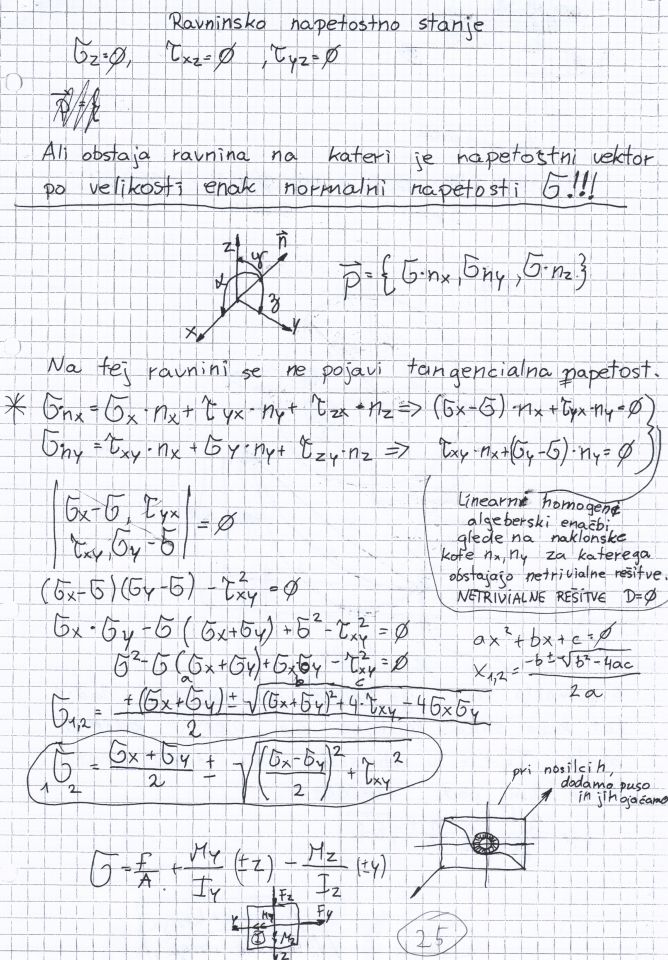 Ravninsko napetostno stanje
σz=∅, τxz=∅ , τyz=∅
Ali obstaja ravnina na kateri je napetostni vektor
po velikosti enak normalni napetosti σ!!!
z n⃗
x y
p⃗ = {σ·nx, σny, σ·nz}
Na tej ravnini se ne pojavi tangencialna napetost.
* σnx = σx·nx + τyx·ny + τzx·nz => (σx-σ)·nx + τyx·ny = ∅
σny = τxy·nx + σy·ny + τzy·nz => τxy·nx + (σy-σ)·ny = ∅
|σx-σ, τyx|
|τxy, σy-σ| = ∅
Linearni homogeni
algeberski enačbi,
glede na naklonske
kote nx, ny za katerega
obstajajo netrivialne rešitve.
NETRIVIALNE REŠITVE D=∅
(σx-σ)(σy-σ) - τxy² = ∅
σx·σy - σ(σx+σy) + σ² - τxy² = ∅
σ² - σ(σx+σy) + σxσy - τxy² = ∅
a b c
ax²+bx+c=∅
x1,2 = (-b ± √(b²-4ac)) / 2a
σ1,2 = (+(σx+σy) ± √((σx+σy)² + 4·τxy - 4σxσy)) / 2
1σ2 = (σx+σy)/2 ± √(((σx-σy)/2)² + τxy²)
pri nosilcih,
dodamo pušo
in jih ojačamo
σ = f/A + My/Iy (±z) - Mz/Iz (±y)
Fz
y My Fy
Mz
z
25